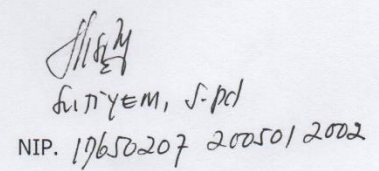 SUTIYEM, S.pd
NIP. 19650207 200501 2002